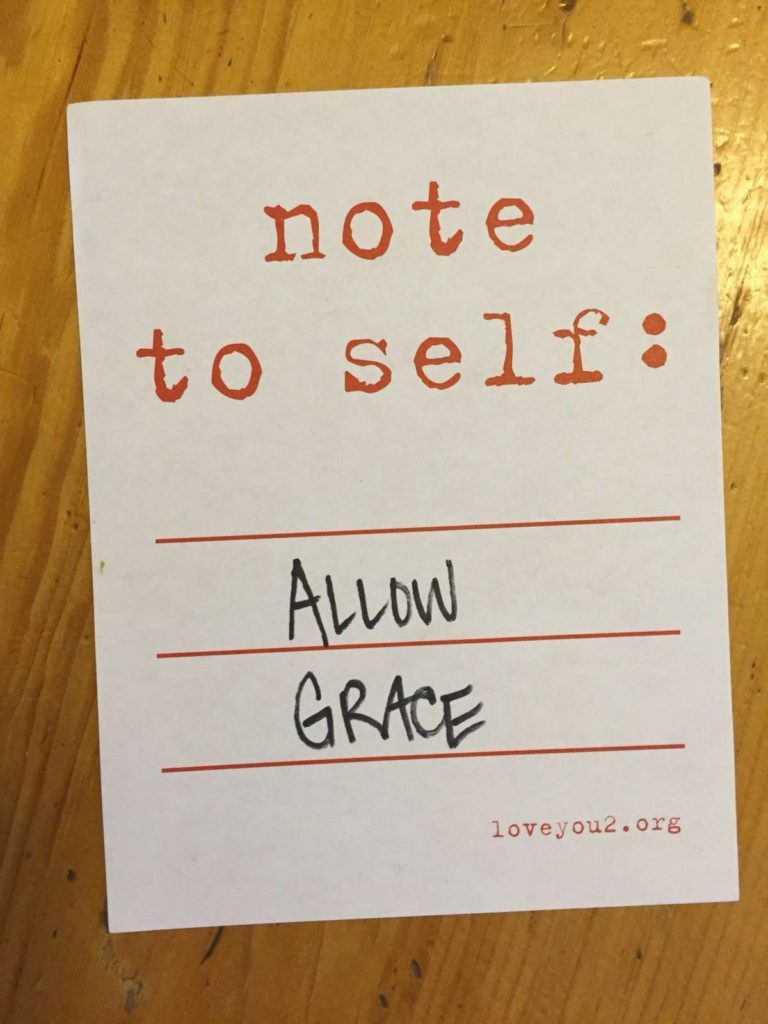 note
to self:
ALLOW
GRACE
loveyou2.org